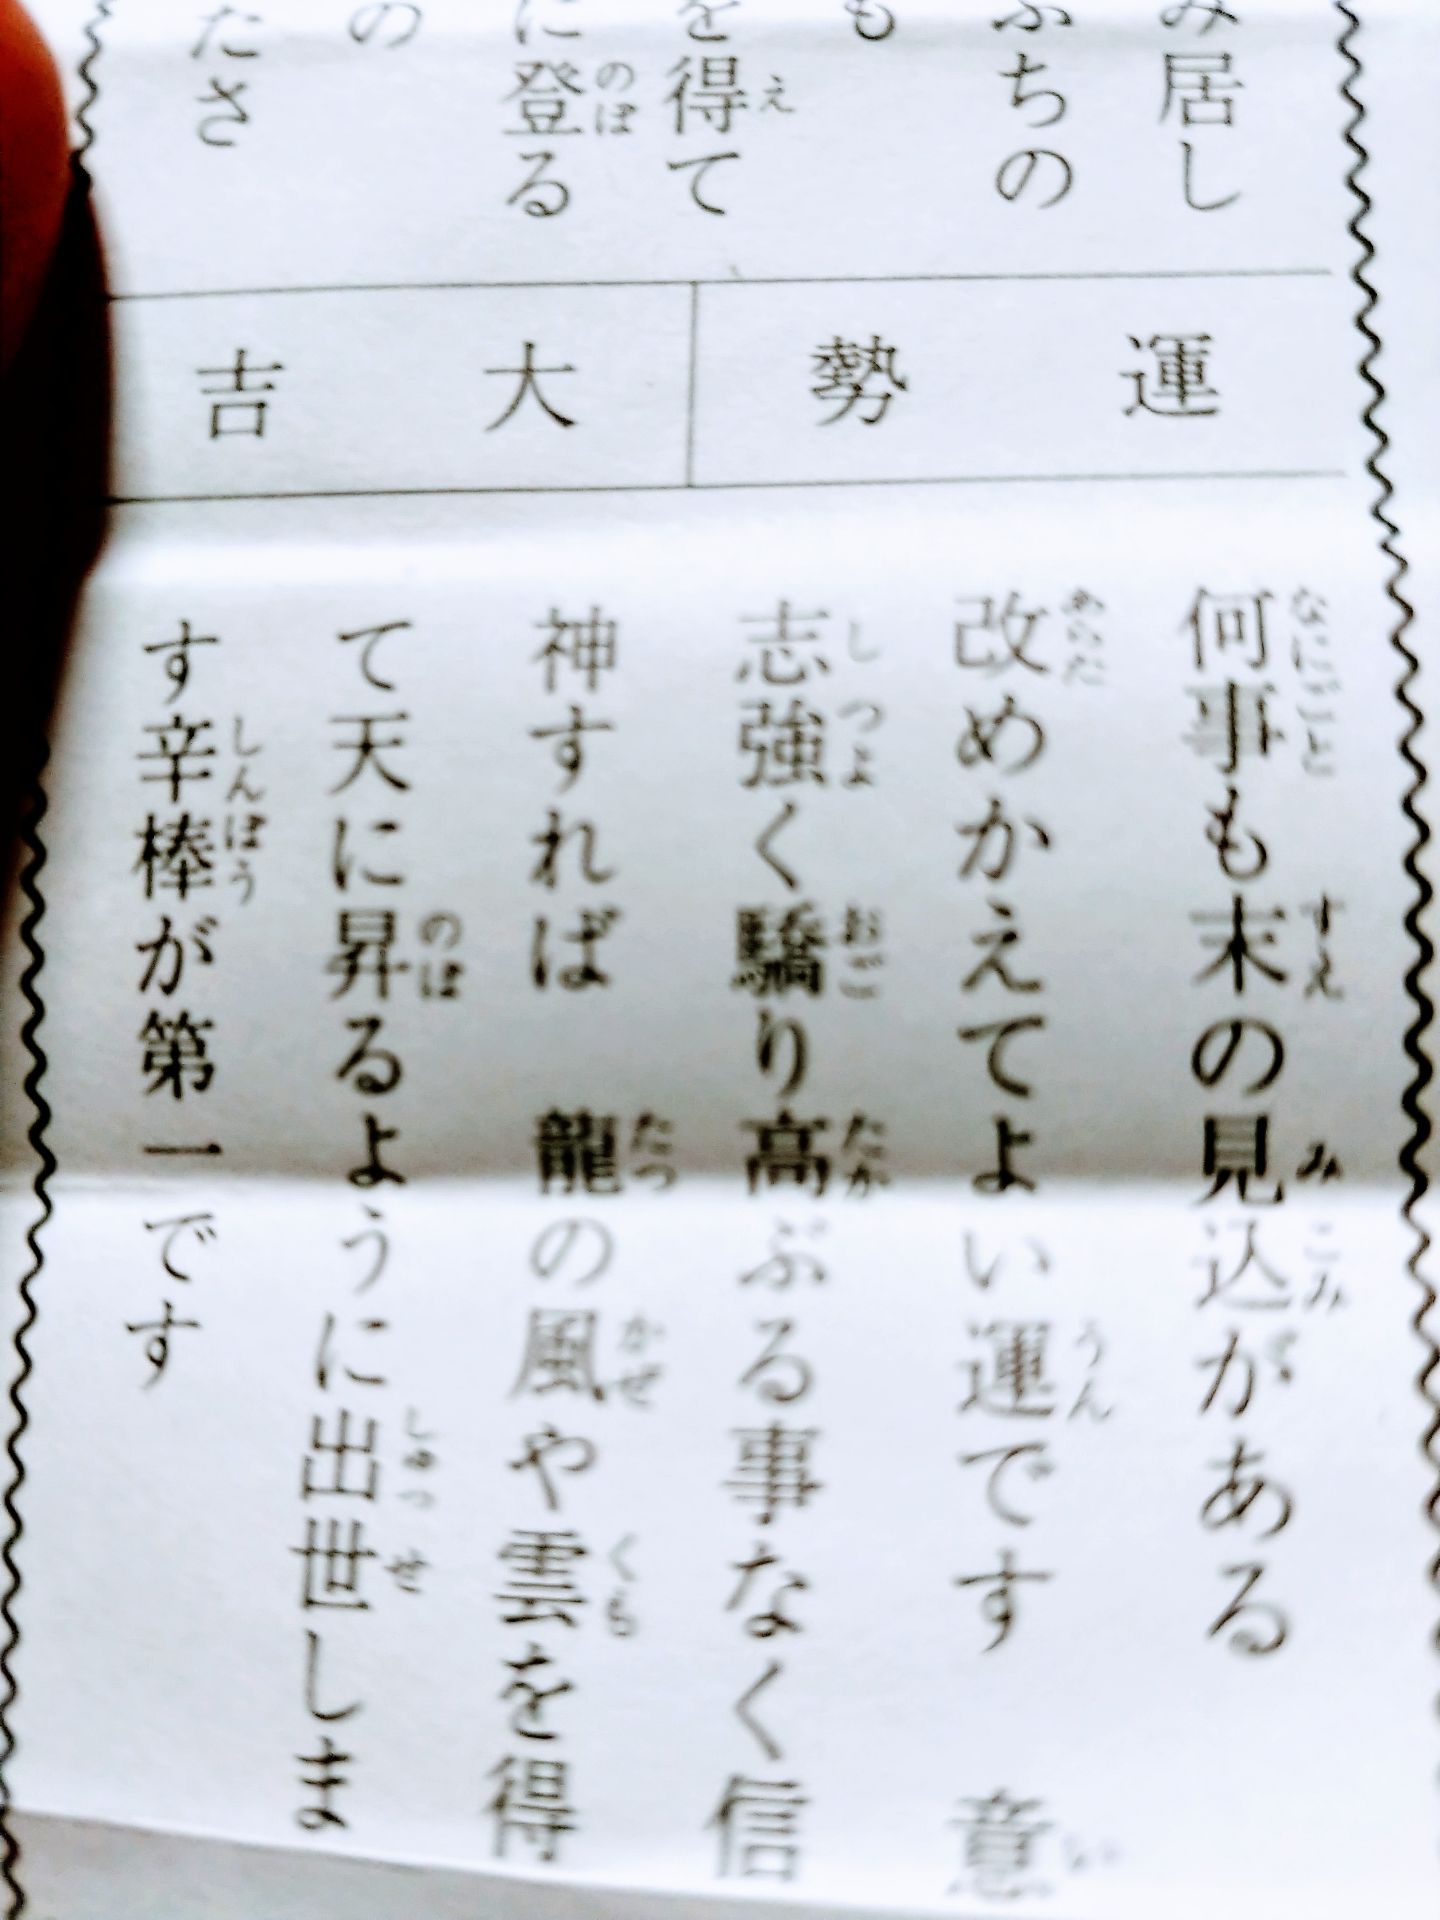 み居し
ぶちの
も
を得て
に登る
の
たさ
運勢
大吉
何事も末の見込がある
改めかえてよい運です 意
志強く驕り高ぶる事なく信
神すれば 龍の風や雲を得
て天に昇るように出世しま
す辛棒が第一です